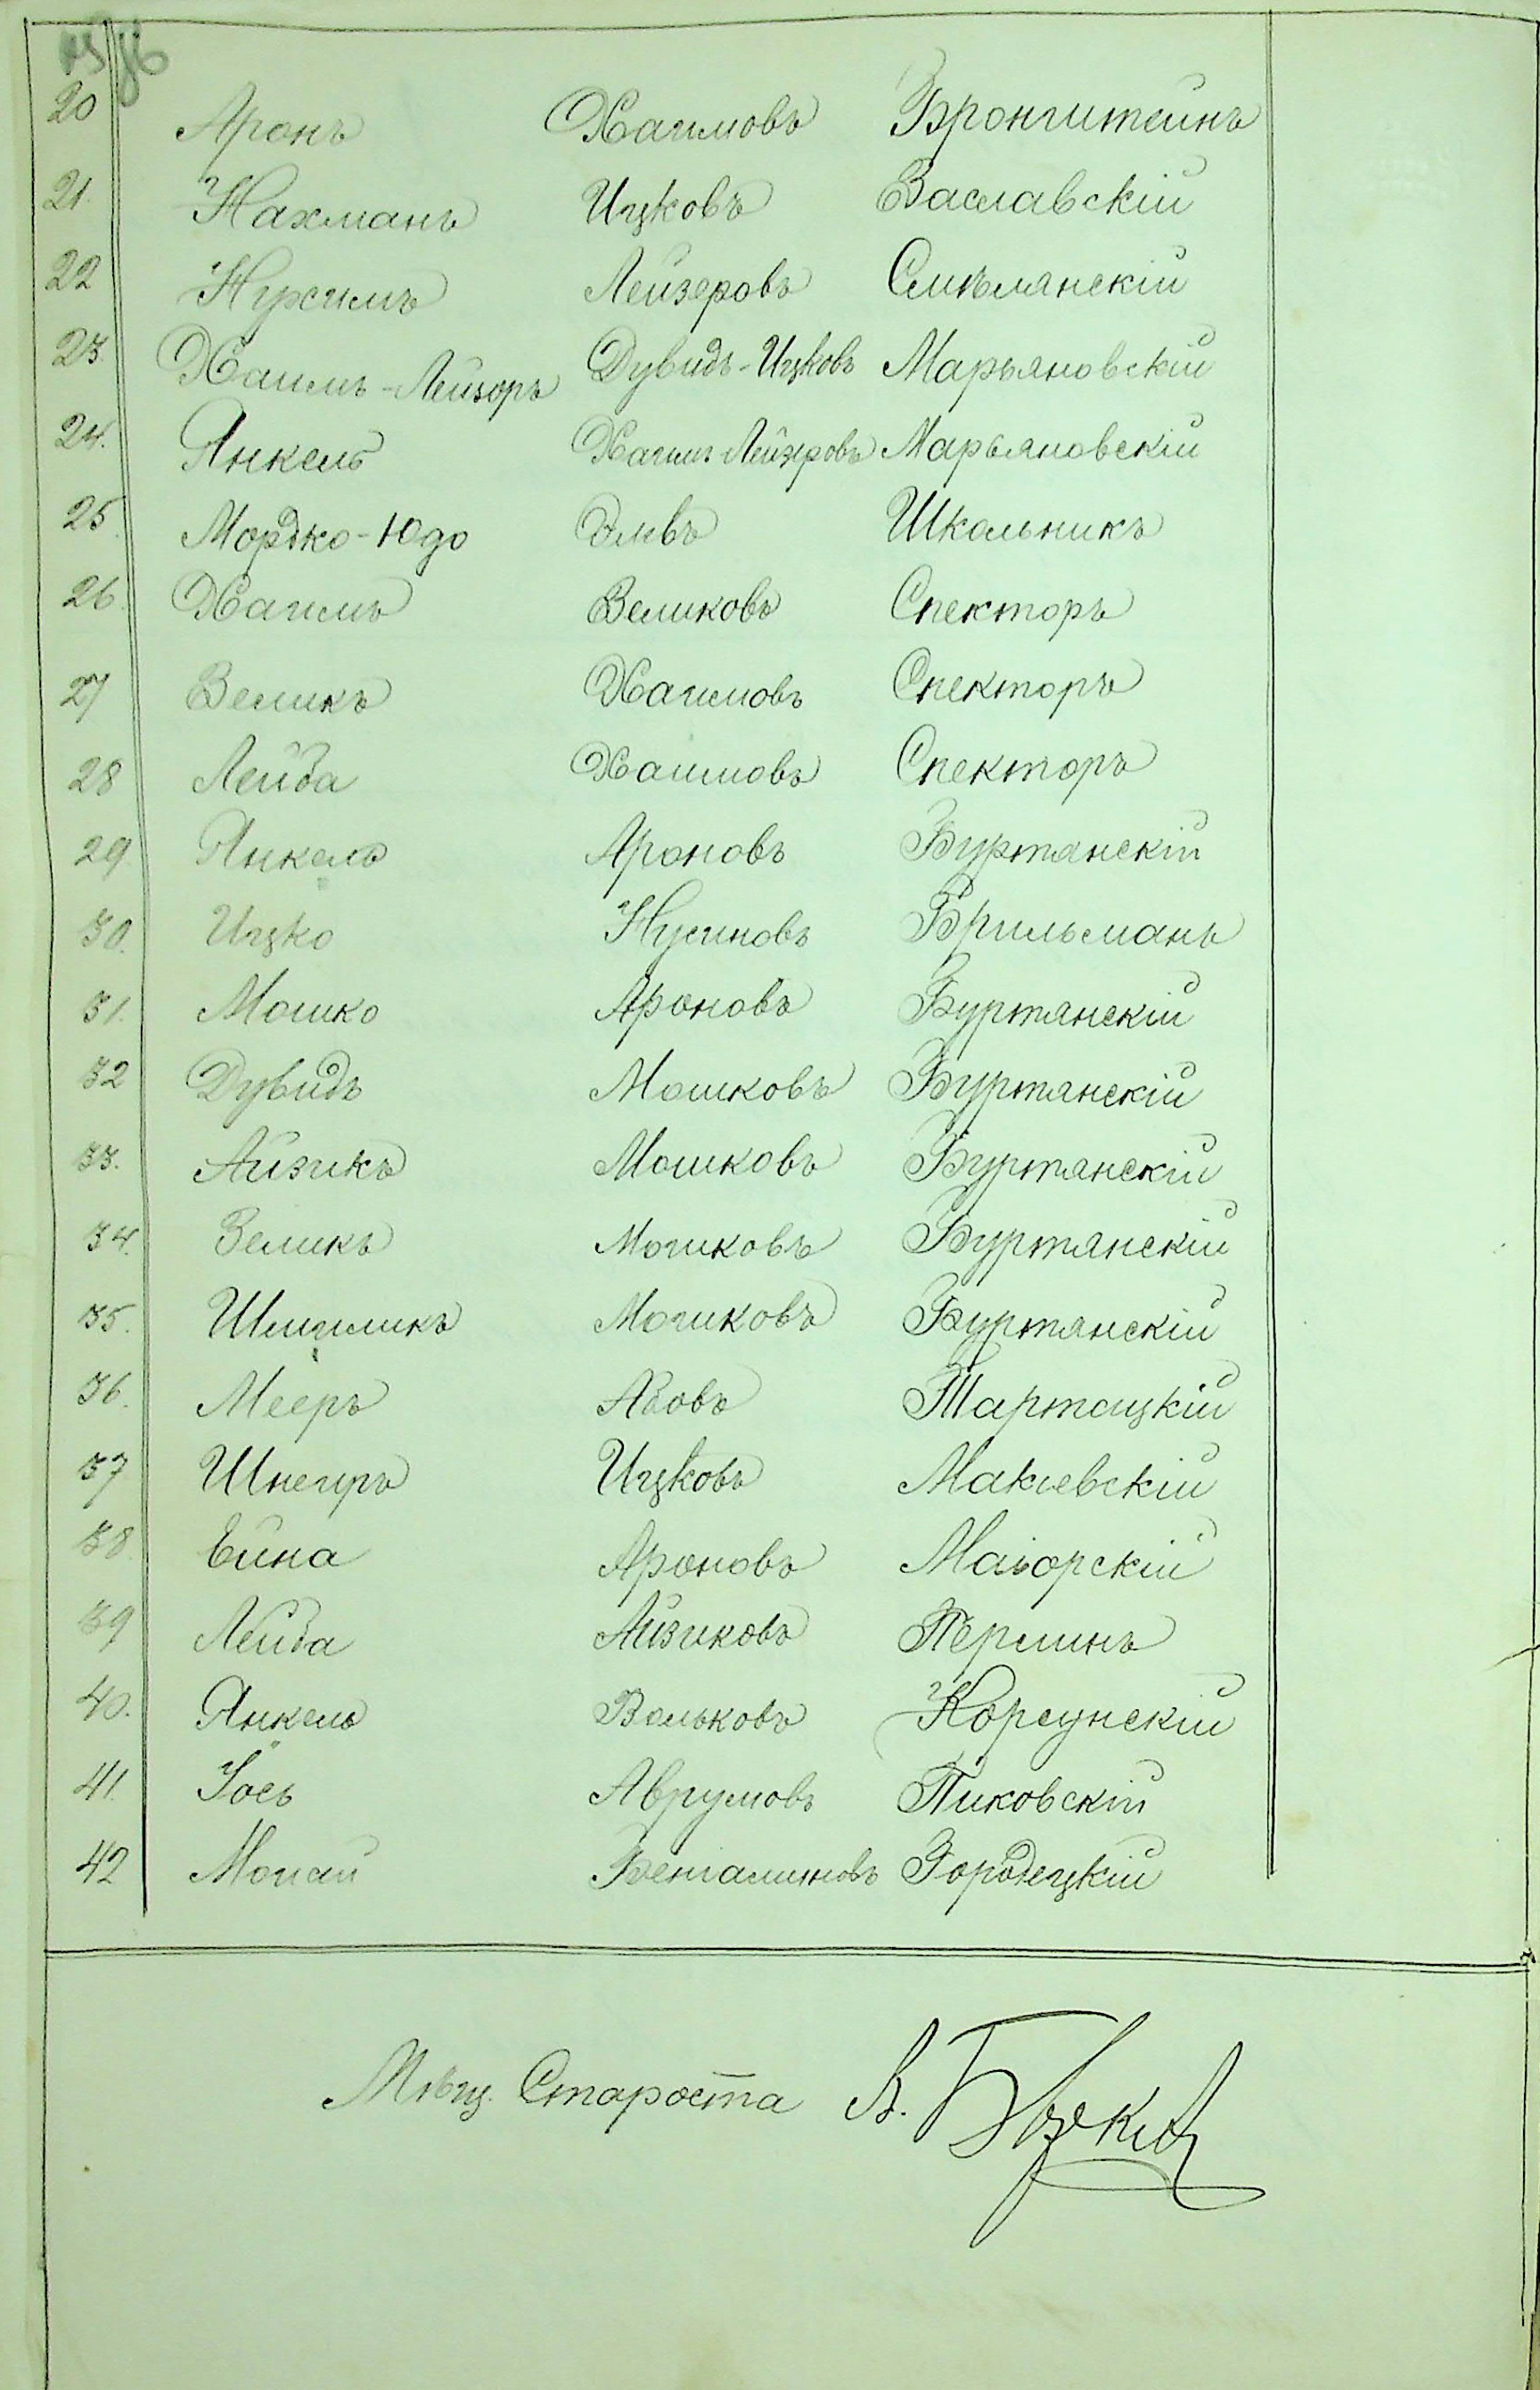 20 Аронъ Хаимовъ Бронштейнъ
21. Нахманъ Ицковъ Заславскій
22 Нухимъ Лейзеровъ Смѣлянскій
23. Хаимъ-Лейзоръ Дувидъ-Ицковъ Марьяновскій
24. Янкель Хаимъ Лейзеровъ Марьяновскій
25. Мордко-Юдо Элевъ Школьникъ
26. Хаимъ Зеликовъ Спекторъ
27 Зеликъ Хаимовъ Спекторъ
28 Лейба Хаимовъ Спекторъ
29. Янкель Ароновъ Буртянскій
30. Ицко Нусиновъ Брильманъ
31. Мошко Ароновъ Буртянскій
32 Дувидъ Мошковъ Буртянскій
33. Айзикъ Мошковъ Буртянскій
34. Зеликъ Мошковъ Буртянскій
35. Шмиликъ Мошковъ Буртянскій
36. Мееръ Абовъ Тартацкій
37 Шнеиръ Ицковъ Макіевскій
38. Ейна Ароновъ Маіорскій
39 Лейба Айзиковъ Перлинъ
40. Янкель Вольковъ Корсунскій
41. Іось Аврумовъ Пиковскій
42 Мопай Беніаминовъ Городецкій
Мѣщ. Староста